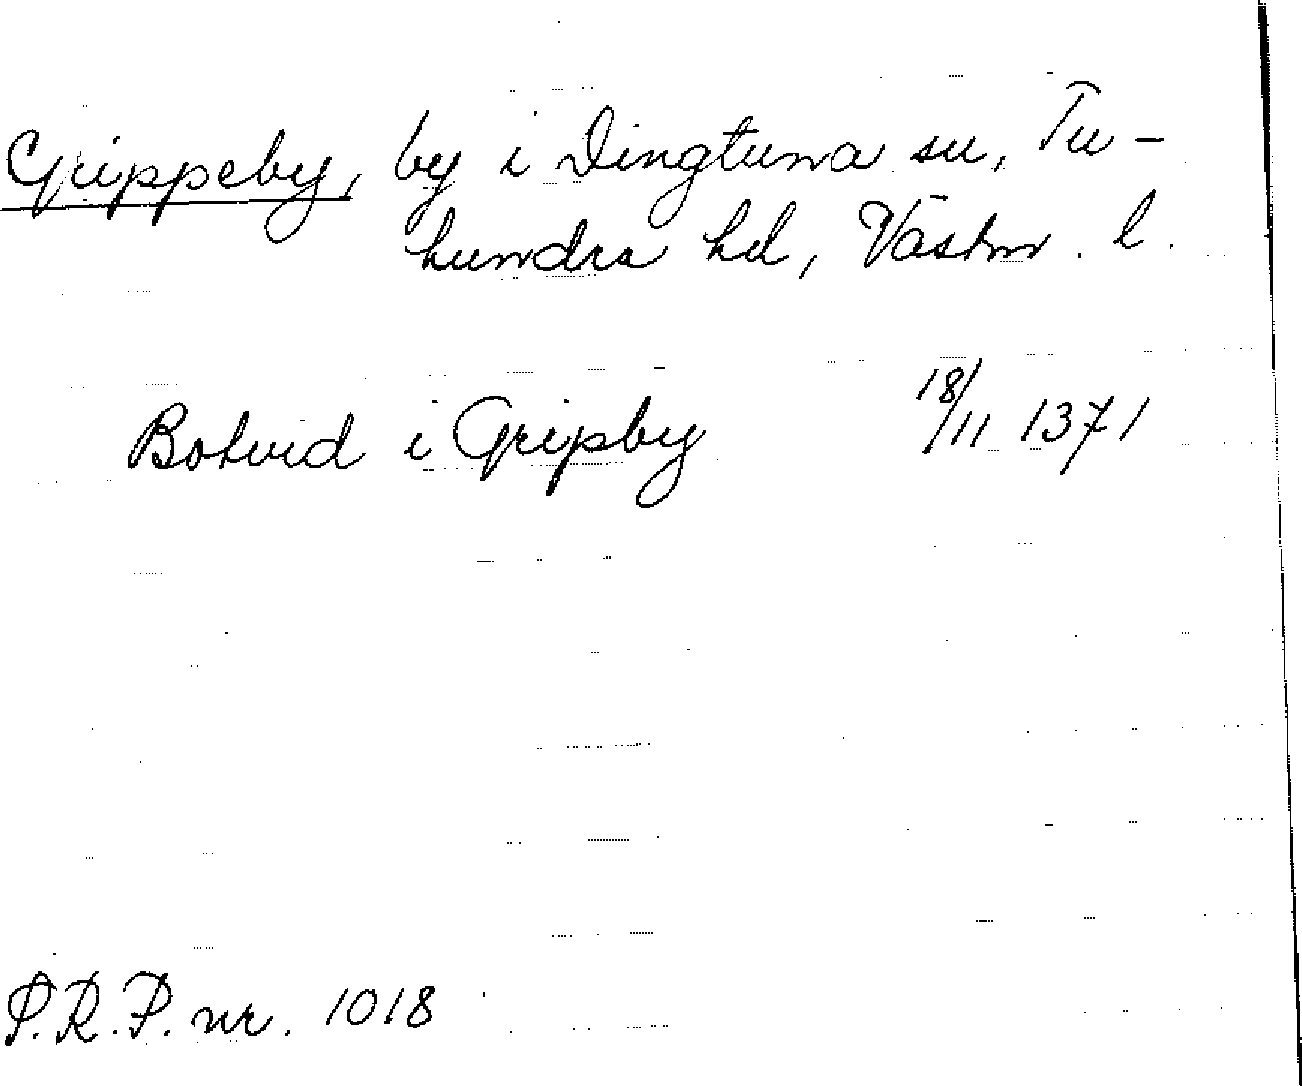 Grippeby, by i Dingtuna sn, Tu-
hundra hd, Västm. l.
Botvid i Gripsby 18/11 1371
P.R.P. nr. 1018